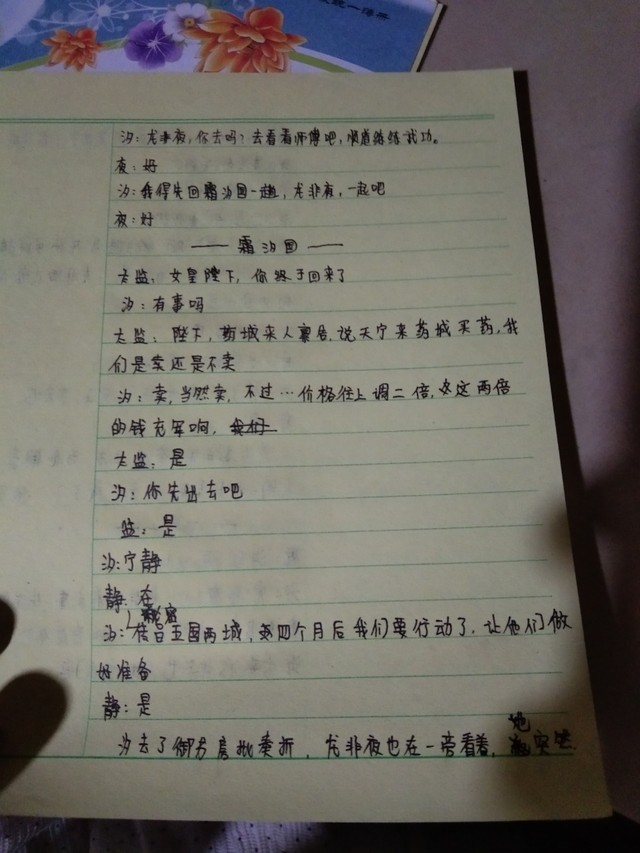 汐：龙非夜，你去吗？去看看师傅吧，顺道练练武功。
夜：好
汐：我得先回霜汐国一趟，龙非夜，一起吧
夜：好
—— 霜汐国 ——
太监：女皇陛下，你终于回来了
汐：有事吗
太监：陛下，药城来人禀告，说天宁来药城买药，我
们是卖还是不卖
汐：卖，当然卖，不过…价格往上调二倍，这两倍
的钱充军响，我们
太监：是
汐：你先出去吧
监：是
汐：宁静
静：在
秘密
汐：传召五国两城，四个月后我们要行动了，让他们做
好准备
静：是
她
汐去了御书房批奏折，龙非夜也在一旁看着，突然